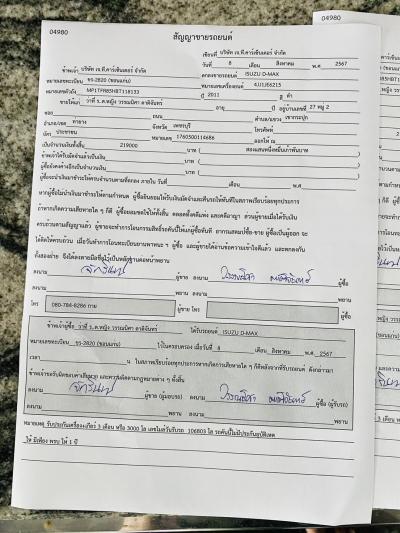 04980
04980
สัญญาขายรถยนต์
เขียนที่ บริษัท เจ.ที.คาร์เซ็นเตอร์ จำกัด
วันที่ 8 เดือน สิงหาคม พ.ศ. 2567
ข้าพเจ้า บริษัท เจ.ที.คาร์เซ็นเตอร์ จำกัด ตกลงขายรถยนต์ ISUZU D-MAX
หมายเลขทะเบียน ขร-2820 (ขอนแก่น) หมายเลขเครื่องยนต์ 4JJ1J66215
หมายเลขตัวถัง MP1TFR85HBT118133 ปี 2011 สี ดำ
ขายให้แก่ วาที่ ร.ต.หญิง วรรณนิศา อาจิจันทร์ อายุ ปี อยู่บ้านเลขที่ 27 หมู่ 2
ซอย ถนน ตำบล/แขวง เขากระปุก
อำเภอ/เขต ท่ายาง จังหวัด เพชรบุรี โทรศัพท์
บัตร ประชาชน หมายเลข 1760500114686 ออกให้ ณ
เป็นจำนวนทั้งสิ้น 219000 บาท ( สองแสนหนึ่งหมื่นเก้าพันบาท
ข้าพเจ้าได้รับมัดจำแล้วเป็นเงิน บาท (
ผู้ซื้อยังคงค้างอีกเป็นจำนวนเงิน บาท (
ผู้ซื้อจะนำเงินมาชำระให้ครบจำนวนตามที่ตกลง ภายใน วันที่ เดือน พ.ศ
หากผู้ซื้อไม่นำเงินมาชำระตามกำหนด ผู้ซื้อยินยอมให้ริบเงินมัดจำและคืนรถให้ทันทีในสภาพเรียบร้อยทุกประการ
ถ้าหากเกิดความเสียหายใด ๆ ก็ดี ผู้ซื้อยอมชดใช้ให้ทั้งสิ้น ตลอดทั้งคดีแพ่ง และคดีอาญา ส่วนผู้ขายเมื่อได้รับเงิน
ครบถ้วนตามสัญญาแล้ว ผู้ขายจะทำการโอนกรรมสิทธิ์รถคันนี้ให้แก่ผู้ซื้อทันที อากรแสตมป์ซื้อ-ขาย ผู้ซื้อเป็นผู้ออก จะ
ทั้งสองฝ่าย จึงได้ลงลายมือชื่อไว้เป็นหลักฐานต่อหน้าพยาน
ลงนาม ผู้ขาย ลงนาม ผู้ซื้อ
ลงนาม พยาน ลงนาม พยาน
โทร 080-786-8286 กาย ผู้ขาย โทร ผู้ซื้อ
ข้าพเจ้าผู้ซื้อ วาที่ ร.ต.หญิง วรรณนิศา อาจิจันทร์ ได้รับรถยนต์ ISUZU D-MAX
หมายเลขทะเบียน ขร-2820 (ขอนแก่น) ไว้ในครอบครอง เมื่อวันที่ 8 เดือน สิงหาคม พ.ศ 2567
เวลา น ในสภาพเรียบร้อยทุกประการหากเกิดการเสียหายใด ๆ ก็ดีหลังจากที่รับรถยนต์ ดังกล่าวมา
ข้าพเจ้าขอรับผิดชอบค่าเสียหาย และความผิดตามกฎหมายต่าง ๆ ทั้งสิ้น
ลงนาม ผู้ขาย (ผู้มอบรถ) ลงนาม ผู้ซื้อ (ผู้รับรถ)
ลงนาม พยาน ลงนาม พยาน
หมายเหตุ รับประกันเครื่อง+เกียร์ 3 เดือน หรือ 3000 โล เลขไมล์วันรับรถ 106803 โล รถคันนี้ไม่มีประกันอุบัติเหตุ
ให้ มีเฟือง พรบ ให้ 1 ปี